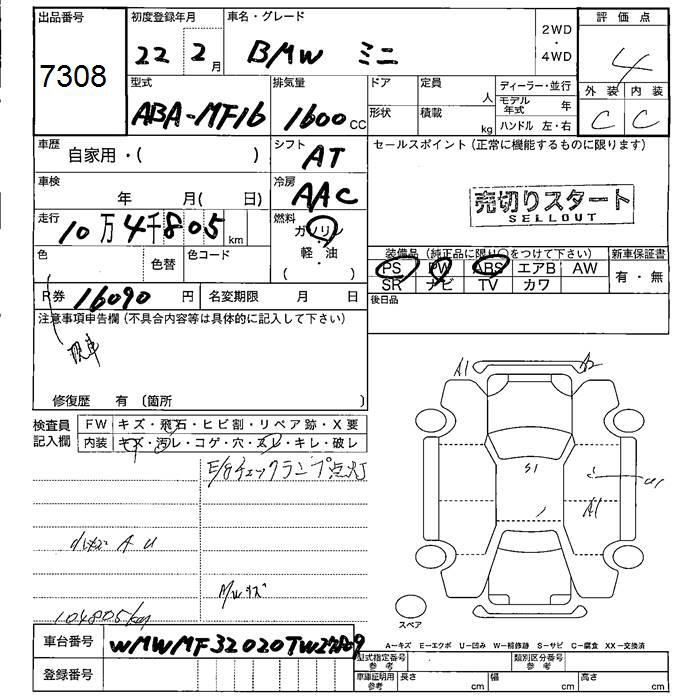 出品番号
7308
初度登録年月
22 2月
車名・グレード
BMW ミニ
2WD
・
4WD
評価点
4
型式
ABA-MF16
排気量
1600 cc
ドア
形状
定員
人
積載
kg
ディーラー・並行
モデル年式
年
ハンドル 左・右
外装 内装
C C
車歴
自家用・( )
シフト
AT
セールスポイント(正常に機能するものに限ります)
車検
年 月( 日)
冷房
AAC
売切りスタート
SELLOUT
走行
10万4千805km
燃料
ガソリン
軽・油
( )
色
色替
色コード
装備品(純正品に限り○をつけて下さい) 新車保証書
PS PW ABS エアB AW
SR ナビ TV カワ
有・無
R券 16090円
名変期限 月 日
後日品
注意事項申告欄(不具合内容等は具体的に記入して下さい)
現車
修復歴 有 (箇所 )
検査員
記入欄
FW キズ・飛石・ヒビ割・リペア跡・X要
内装 キズ・汚レ・コゲ・穴・スレ・キレ・破レ
E/gチェックランプ点灯
A1
A2
S1
U1
A1
A U
104805km
スペア
車台番号
WMWMF32020TW27809
登録番号
A−キズ E−エクボ U−凹み W−補修跡 S−サビ C−腐食 XX−交換済
型式指定番号
参考
類別区分番号
参考
車庫証明用
参考
長さ cm
幅 cm
高さ cm